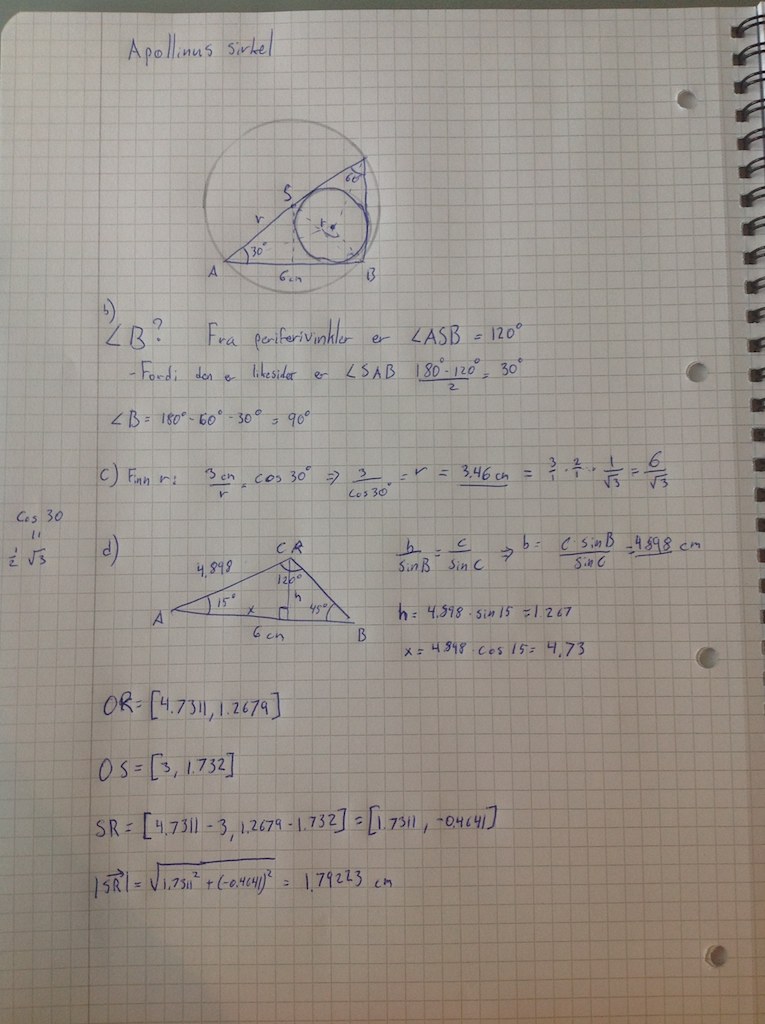 Apollinus sirkel
60°
S
r
r
30°
A
6 cm
B
b)
∠B? Fra periferivinkler er ∠ASB = 120°
- Fordi den er likesidet er ∠SAB (180° - 120°)/2 = 30°
∠B = 180° - 60° - 30° = 90°
c) Finn r: 3 cm/r = cos 30° ⇒ 3/cos 30° = r = 3.46 cm = 3/1 · 2/1 · 1/√3 = 6/√3
Cos 30
=
1/2 √3
d)
C R
4,898
120°
h
A
15°
x
45°
6 cm
B
b/sin B = c/sin C ⇒ b = c sin B/sin C = 4.898 cm
h = 4.898 · sin 15 = 1.267
x = 4.898 · cos 15 = 4.73
OR = [4.7311, 1.2679]
OS = [3, 1.732]
SR = [4.7311 - 3, 1.2679 - 1.732] = [1.7311, -0.4641]
|SR| = √1.7311² + (-0.4641)² = 1.79223 cm